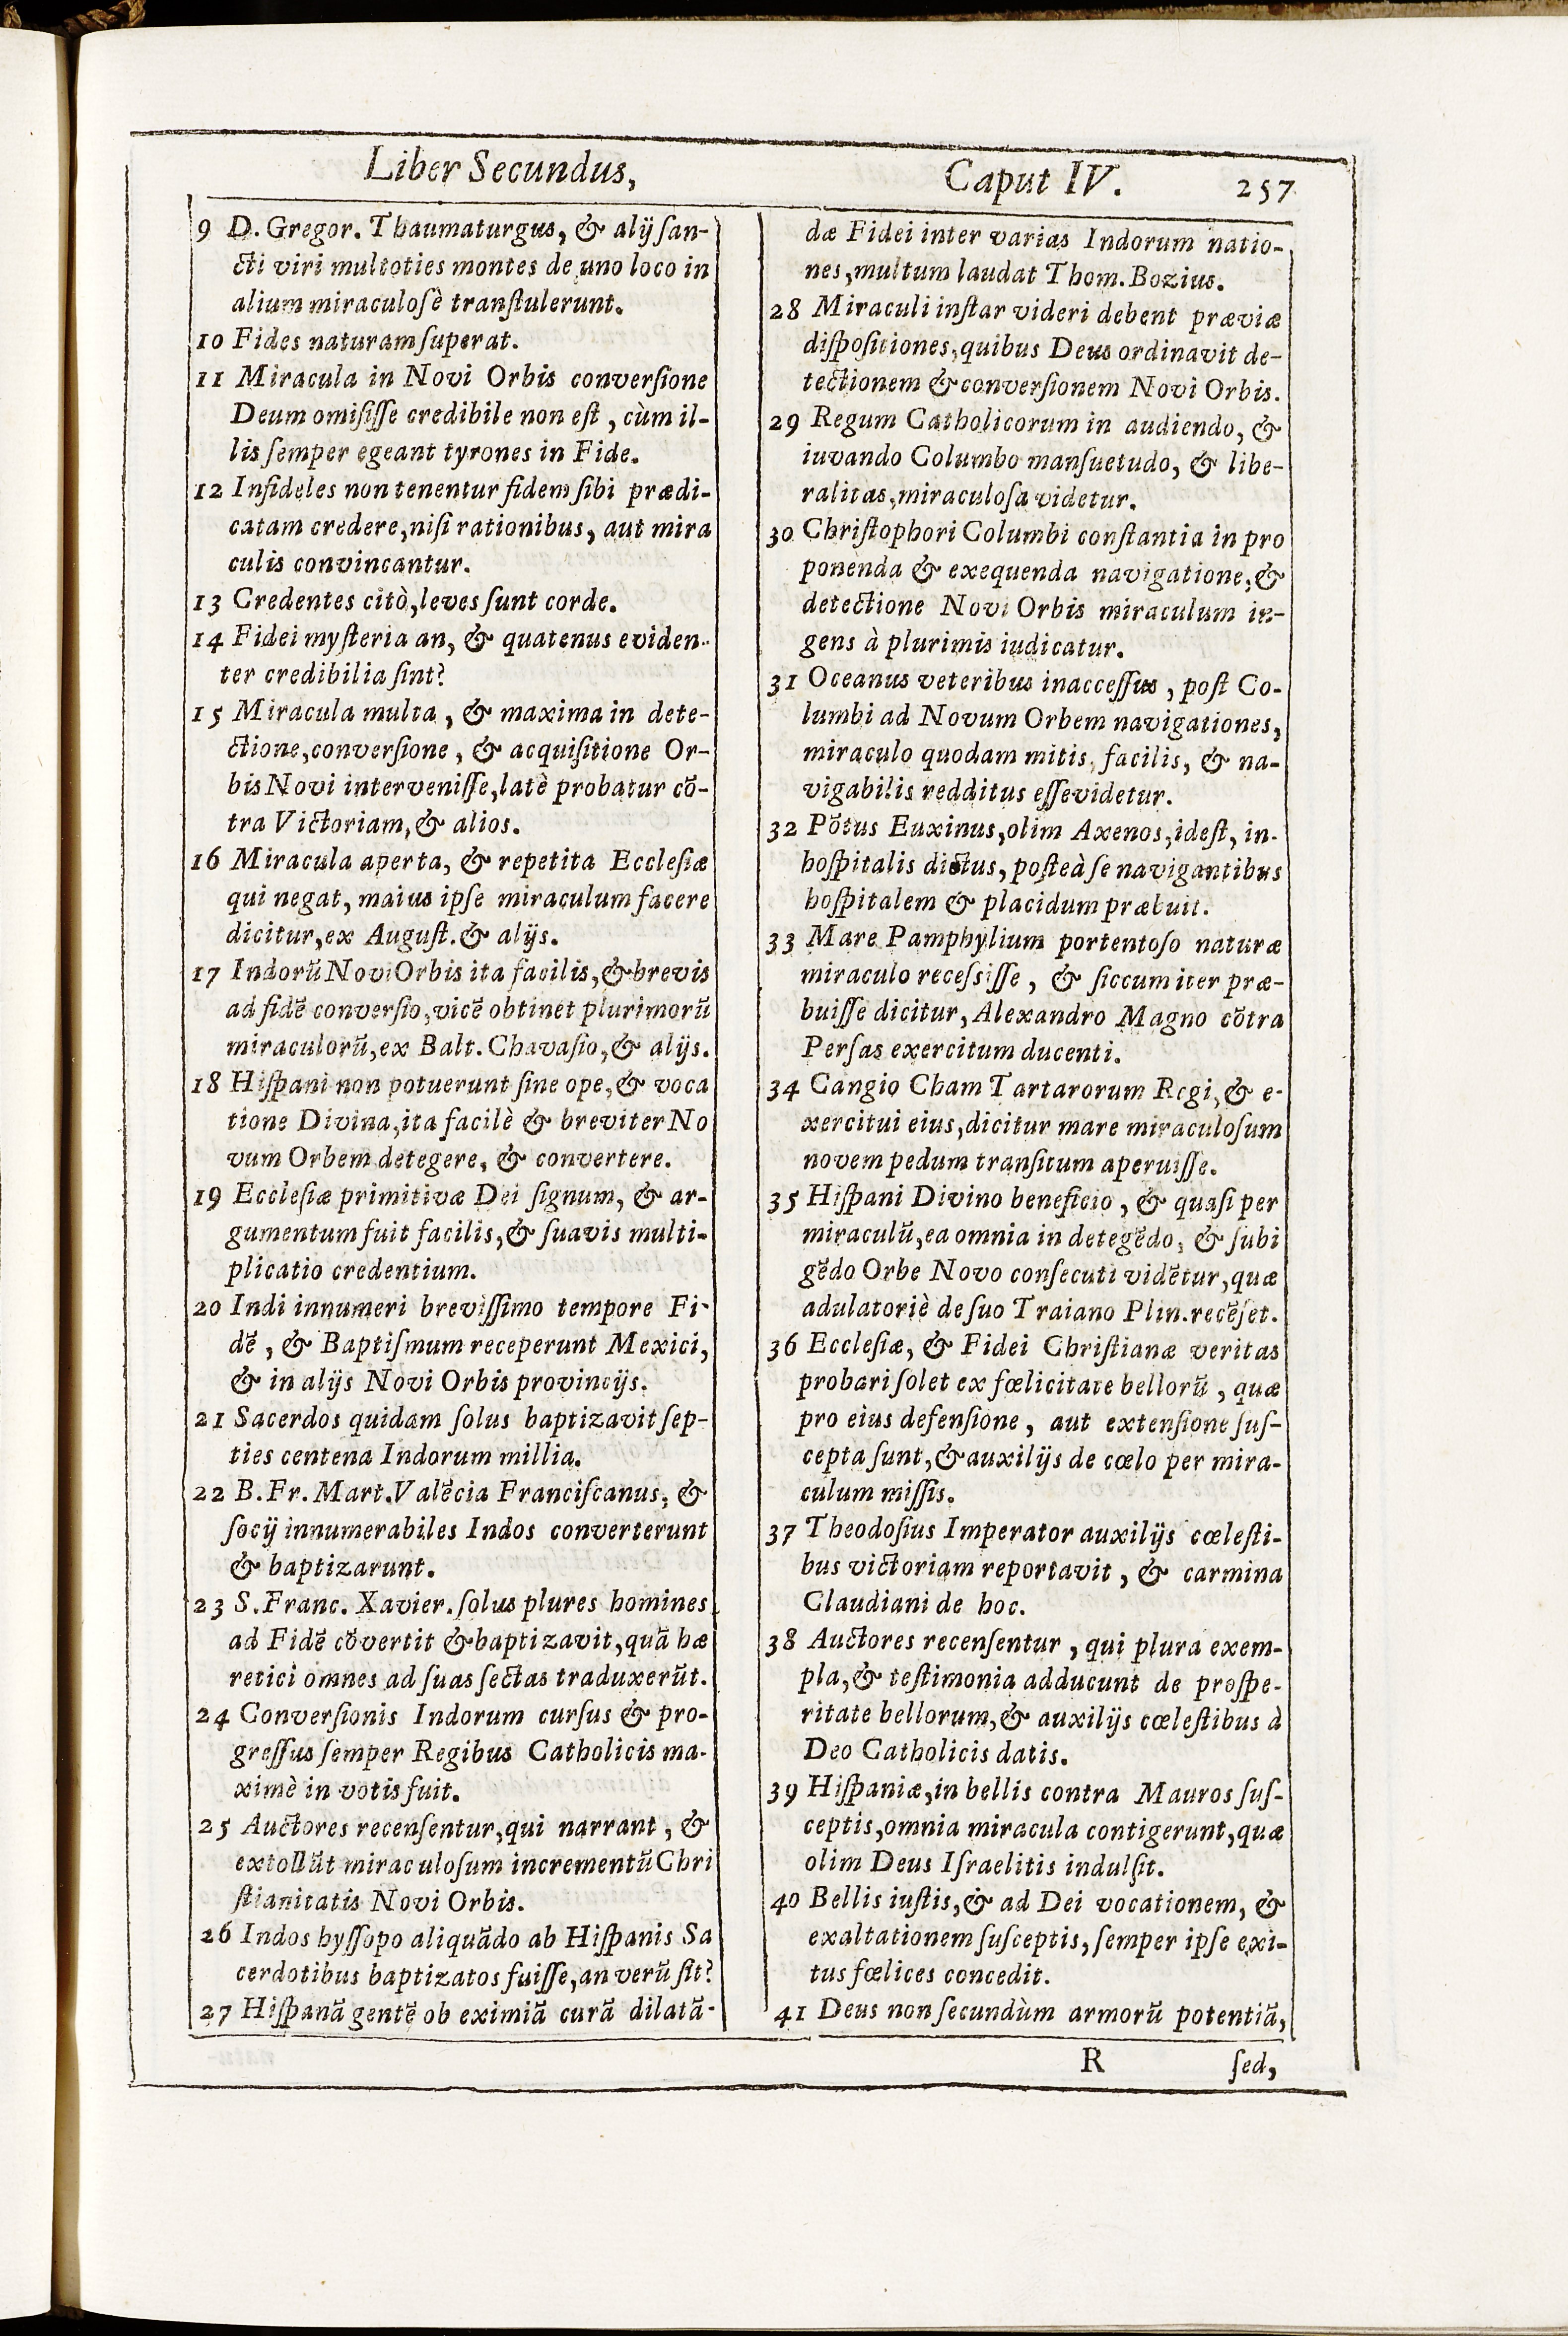 Liber Secundus, Caput IV. 257
9 D. Gregor. Thaumaturgus, & alij ſan-
cti viri multoties montes de uno loco in
alium miraculoſè tranſtulerunt.
10 Fides naturam ſuperat.
11 Miracula in Novi Orbis converſione
Deum omiſiſſe credibile non eſt, cùm il-
lis ſemper egeant tyrones in Fide.
12 Infideles non tenentur fidem ſibi prædi-
catam credere, niſi rationibus, aut mira
culis convincantur.
13 Credentes citò, leves ſunt corde.
14 Fidei myſteria an, & quatenus eviden-
ter credibilia ſint?
15 Miracula multa, & maxima in dete-
ctione, converſione, & acquiſitione Or-
bis Novi interveniſſe, latè probatur cõ-
tra Victoriam, & alios.
16 Miracula aperta, & repetita Eccleſiæ
qui negat, maius ipſe miraculum facere
dicitur, ex Auguſt. & alijs.
17 Indorũ Novi Orbis ita facilis, & brevis
ad fidẽ converſio, vicẽ obtinet plurimorũ
miraculorũ, ex Balt. Chavaſio, & alijs.
18 Hiſpani non potuerunt ſine ope, & voca
tione Divina, ita facilè & breviter No
vum Orbem detegere, & convertere.
19 Eccleſiæ primitivæ Dei ſignum, & ar-
gumentum fuit facilis, & ſuavis multi-
plicatio credentium.
20 Indi innumeri breviſſimo tempore Fi-
dẽ, & Baptiſmum receperunt Mexici,
& in alijs Novi Orbis provincijs.
21 Sacerdos quidam ſolus baptizavit ſep-
ties centena Indorum millia.
22 B. Fr. Mart. Valẽcia Franciſcanus, &
ſocij innumerabiles Indos converterunt
& baptizarunt.
23 S. Franc. Xavier. ſolus plures homines
ad Fidẽ cõvertit & baptizavit, quã hæ
retici omnes ad ſuas ſectas traduxerũt.
24 Converſionis Indorum curſus & pro-
greſſus ſemper Regibus Catholicis ma-
ximè in votis fuit.
25 Auctores recenſentur, qui narrant, &
extollũt miraculoſum incrementũ Chri
ſtianitatis Novi Orbis.
26 Indos hyſſopo aliquãdo ab Hiſpanis Sa
cerdotibus baptizatos fuiſſe, an verũ ſit?
27 Hiſpanã gentẽ ob eximiã curã dilatã-
dæ Fidei inter varias Indorum natio-
nes, multum laudat Thom. Bozius.
28 Miraculi inſtar videri debent præviæ
diſpoſitiones, quibus Deus ordinavit de-
tectionem & converſionem Novi Orbis.
29 Regum Catholicorum in audiendo, &
iuvando Columbo manſuetudo, & libe-
ralitas, miraculoſa videtur.
30 Chriſtophori Columbi conſtantia in pro
ponenda & exequenda navigatione, &
detectione Novi Orbis miraculum in-
gens à plurimis iudicatur.
31 Oceanus veteribus inacceſſus, poſt Co-
lumbi ad Novum Orbem navigationes,
miraculo quodam mitis, facilis, & na-
vigabilis redditus eſſe videtur.
32 Põtus Euxinus, olim Axenos, ideſt, in-
hoſpitalis dictus, poſteà ſe navigantibus
hoſpitalem & placidum præbuit.
33 Mare Pamphylium portentoſo naturæ
miraculo receſsiſſe, & ſiccum iter præ-
buiſſe dicitur, Alexandro Magno cõtra
Perſas exercitum ducenti.
34 Cangio Cham Tartarorum Regi, & e-
xercitui eius, dicitur mare miraculoſum
novem pedum tranſitum aperuiſſe.
35 Hiſpani Divino beneficio, & quaſi per
miraculũ, ea omnia in detegẽdo, & ſubi
gẽdo Orbe Novo conſecuti vidẽtur, quæ
adulatoriè de ſuo Traiano Plin. recẽſet.
36 Eccleſiæ, & Fidei Chriſtianæ veritas
probari ſolet ex fœlicitate bellorũ, quæ
pro eius defenſione, aut extenſione ſuſ-
cepta ſunt, & auxilijs de cœlo per mira-
culum miſſis.
37 Theodoſius Imperator auxilijs cœleſti-
bus victoriam reportavit, & carmina
Claudiani de hoc.
38 Auctores recenſentur, qui plura exem-
pla, & teſtimonia adducunt de proſpe-
ritate bellorum, & auxilijs cœleſtibus à
Deo Catholicis datis.
39 Hiſpaniæ, in bellis contra Mauros ſuſ-
ceptis, omnia miracula contigerunt, quæ
olim Deus Iſraelitis indulſit.
40 Bellis iuſtis, & ad Dei vocationem, &
exaltationem ſuſceptis, ſemper ipſe exi-
tus fœlices concedit.
41 Deus non ſecundùm armorũ potentiã,
R ſed,